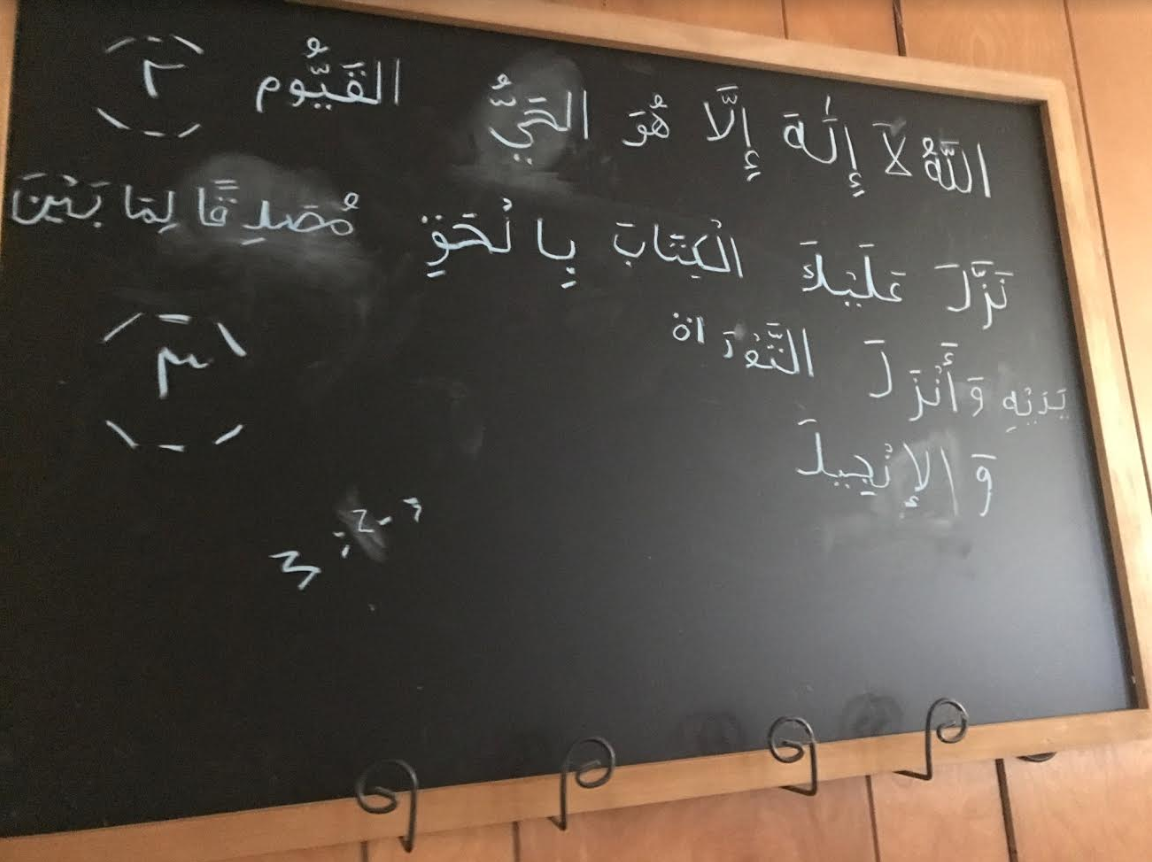 اللَّهُ لَا إِلَٰهَ إِلَّا هُوَ الحَيُّ القَيُّوم ٢
نَزَّلَ عَلَيْكَ الْكِتَابَ بِالْحَقِّ مُصَدِقًا لِمَا بَيْنَ
يَدَيْهِ وَأَنْزَلَ التَّوْرَاةَ ٣
وَالإِنْجِيلَ
3:2-3